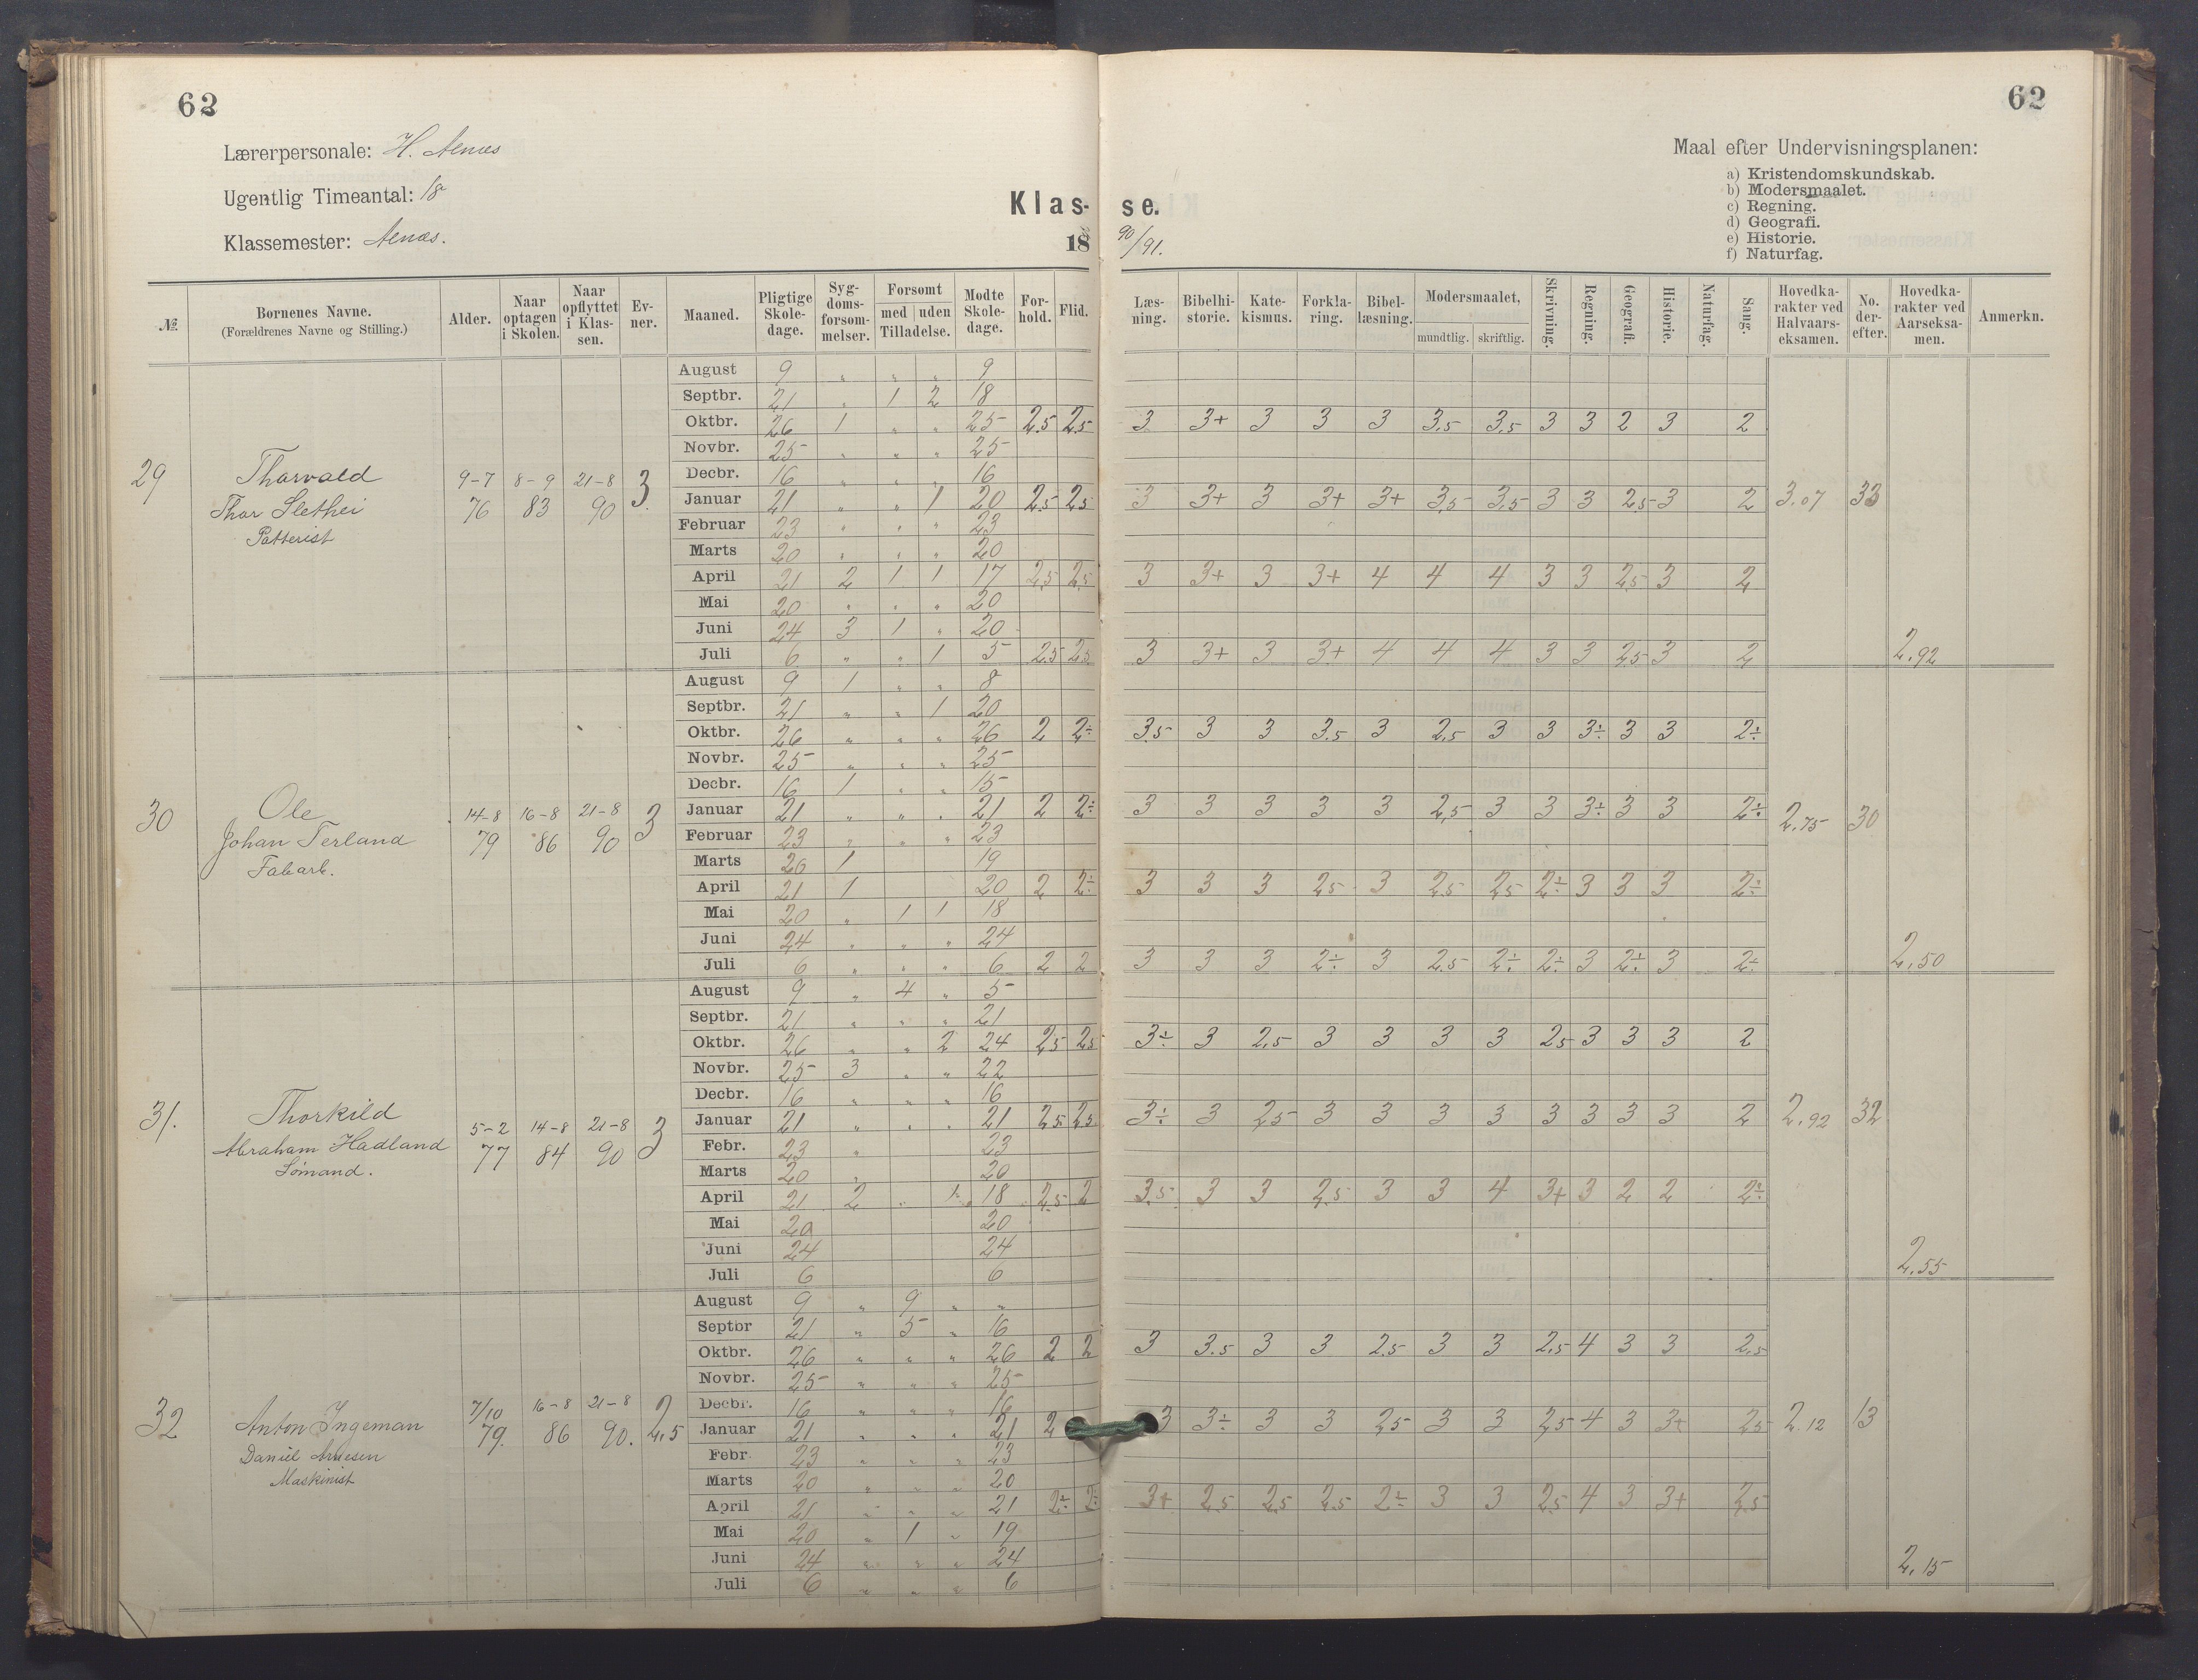 62
62
Lærerpersonale: H. Aenæs
Ugentlig Timeantal: 18
Klassemester: Aenæs.
Klasse.
18 90/91.
Maal efter Undervisningsplanen:
a) Kristendomskundskab.
b) Modersmaalet.
c) Regning.
d) Geografi.
e) Historie.
f) Naturfag.
№ | Børnenes Navne. (Forældrenes Navne og Stilling.) | Alder. | Naar optagen i Skolen. | Naar opflyttet i Klassen. | Evner. | Maaned. | Pligtige Skoledage. | Sygdomsforsømmelser. | Forsømt med uden Tilladelse. | Mødte Skoledage. | Forhold. | Flid. | Læsning. | Bibelhistorie. | Katekismus. | Forklaring. | Bibellæsning. | Modersmaalet, mundtlig. skriftlig. | Skrivning. | Regning. | Geografi. | Historie. | Naturfag. | Sang. | Hovedkarakter ved Halvaarseksamen. | No. derefter. | Hovedkarakter ved Aarseksamen. | Anmerkn.
29 Thorvald
Thor Slethei
Patterist
9-7 76 8-9 83 21-8 90 3
August 9 " " " 9
Septbr. 21 " 1 2 18
Oktbr. 26 1 " " 25 2.5 2.5 3 3+ 3 3 3 3.5 3.5 3 3 2 3 2
Novbr. 25 " " " 25
Decbr. 16 " " " 16
Januar 21 " " 1 20 2.5 2.5 3 3+ 3 3+ 3+ 3.5 3.5 3 3 2.5 3 2 3.07 33
Februar 23 " " " 23
Marts 20 " " " 20
April 21 2 1 1 17 2.5 2.5 3 3+ 3 3+ 4 4 4 3 3 2.5 3 2
Mai 20 " " " 20
Juni 24 3 1 " 20
Juli 6 " " 1 5 2.5 2.5 3 3+ 3 3+ 4 4 4 3 3 2.5 3 2 2.92
30 Ole
Johan Terland
Fabarb.
14-8 79 16-8 86 21-8 90 3
August 9 1 " " 8
Septbr. 21 " " 1 20
Oktbr. 26 " " " 26 2 2÷ 3.5 3 3 3.5 3 2.5 3 3 3÷ 3 3 2÷
Novbr. 25 " " " 25
Decbr. 16 1 " " 15
Januar 21 " " " 21 2 2÷ 3 3 3 3 3 2.5 3 3 3÷ 3 3 2÷ 2.75 30
Februar 23 " " " 23
Marts 20 1 19
April 21 1 20 2 2÷ 3 3 3 2.5 3 2.5 2.5 2÷ 3 3 3 2÷
Mai 20 " 1 1 18
Juni 24 " " " 24
Juli 6 " " " 6 2 2 3 3 3 2÷ 3 2.5 2÷ 2÷ 3 2÷ 3 2÷ 2.50
31. Thorkild
Abraham Hadland
Sømand.
5-2 77 14-8 84 21-8 90 3
August 9 " 4 " 5
Septbr. 21 " " " 21
Oktbr. 26 " " 2 24 2.5 2.5 3÷ 3 2.5 3 3 3 3 2.5 3 3 3 2
Novbr. 25 3 " " 22
Decbr. 16 " " " 16
Januar 21 " " " 21 2.5 2.5 3÷ 3 2.5 3 3 3 3 3 3 3 3 2 2.92 32
Febr. 23 " 23
Marts 20 " 20
April 21 2 " 1 18 2.5 2 3.5 3 3 2.5 3 3 4 3+ 3 2 2 2÷
Mai 20 20
Juni 24 24
Juli 6 6 2.55
32 Anton Ingeman
Daniel Arnesen
Maskinist
7/10 79. 16-8 86 21-8 90. 2.5
August 9 " 9 " "
Septbr 21 " 5 " 16
Oktbr. 26 " " " 26 2 2 3 3.5 3 3 2.5 3 3 2.5 4 3 3 2.5
Novbr. 25 " " " 25
Decbr. 16 " " " 16
Januar 21 " " " 21 2 3 3÷ 3 3 2.5 3 3 2.5 4 3 3+ 2.5 2.12 13
Febr 23 " " " 23
Marts 20 " " " 20
April 21 " " " 21 2÷ 2÷ 3+ 2.5 2.5 2.5 2÷ 3 3 2.5 4 3 3+ 2.5
Mai 20 " 1 " 19
Juni 24 " " " 24
Juli 6 " " " 6 2.15